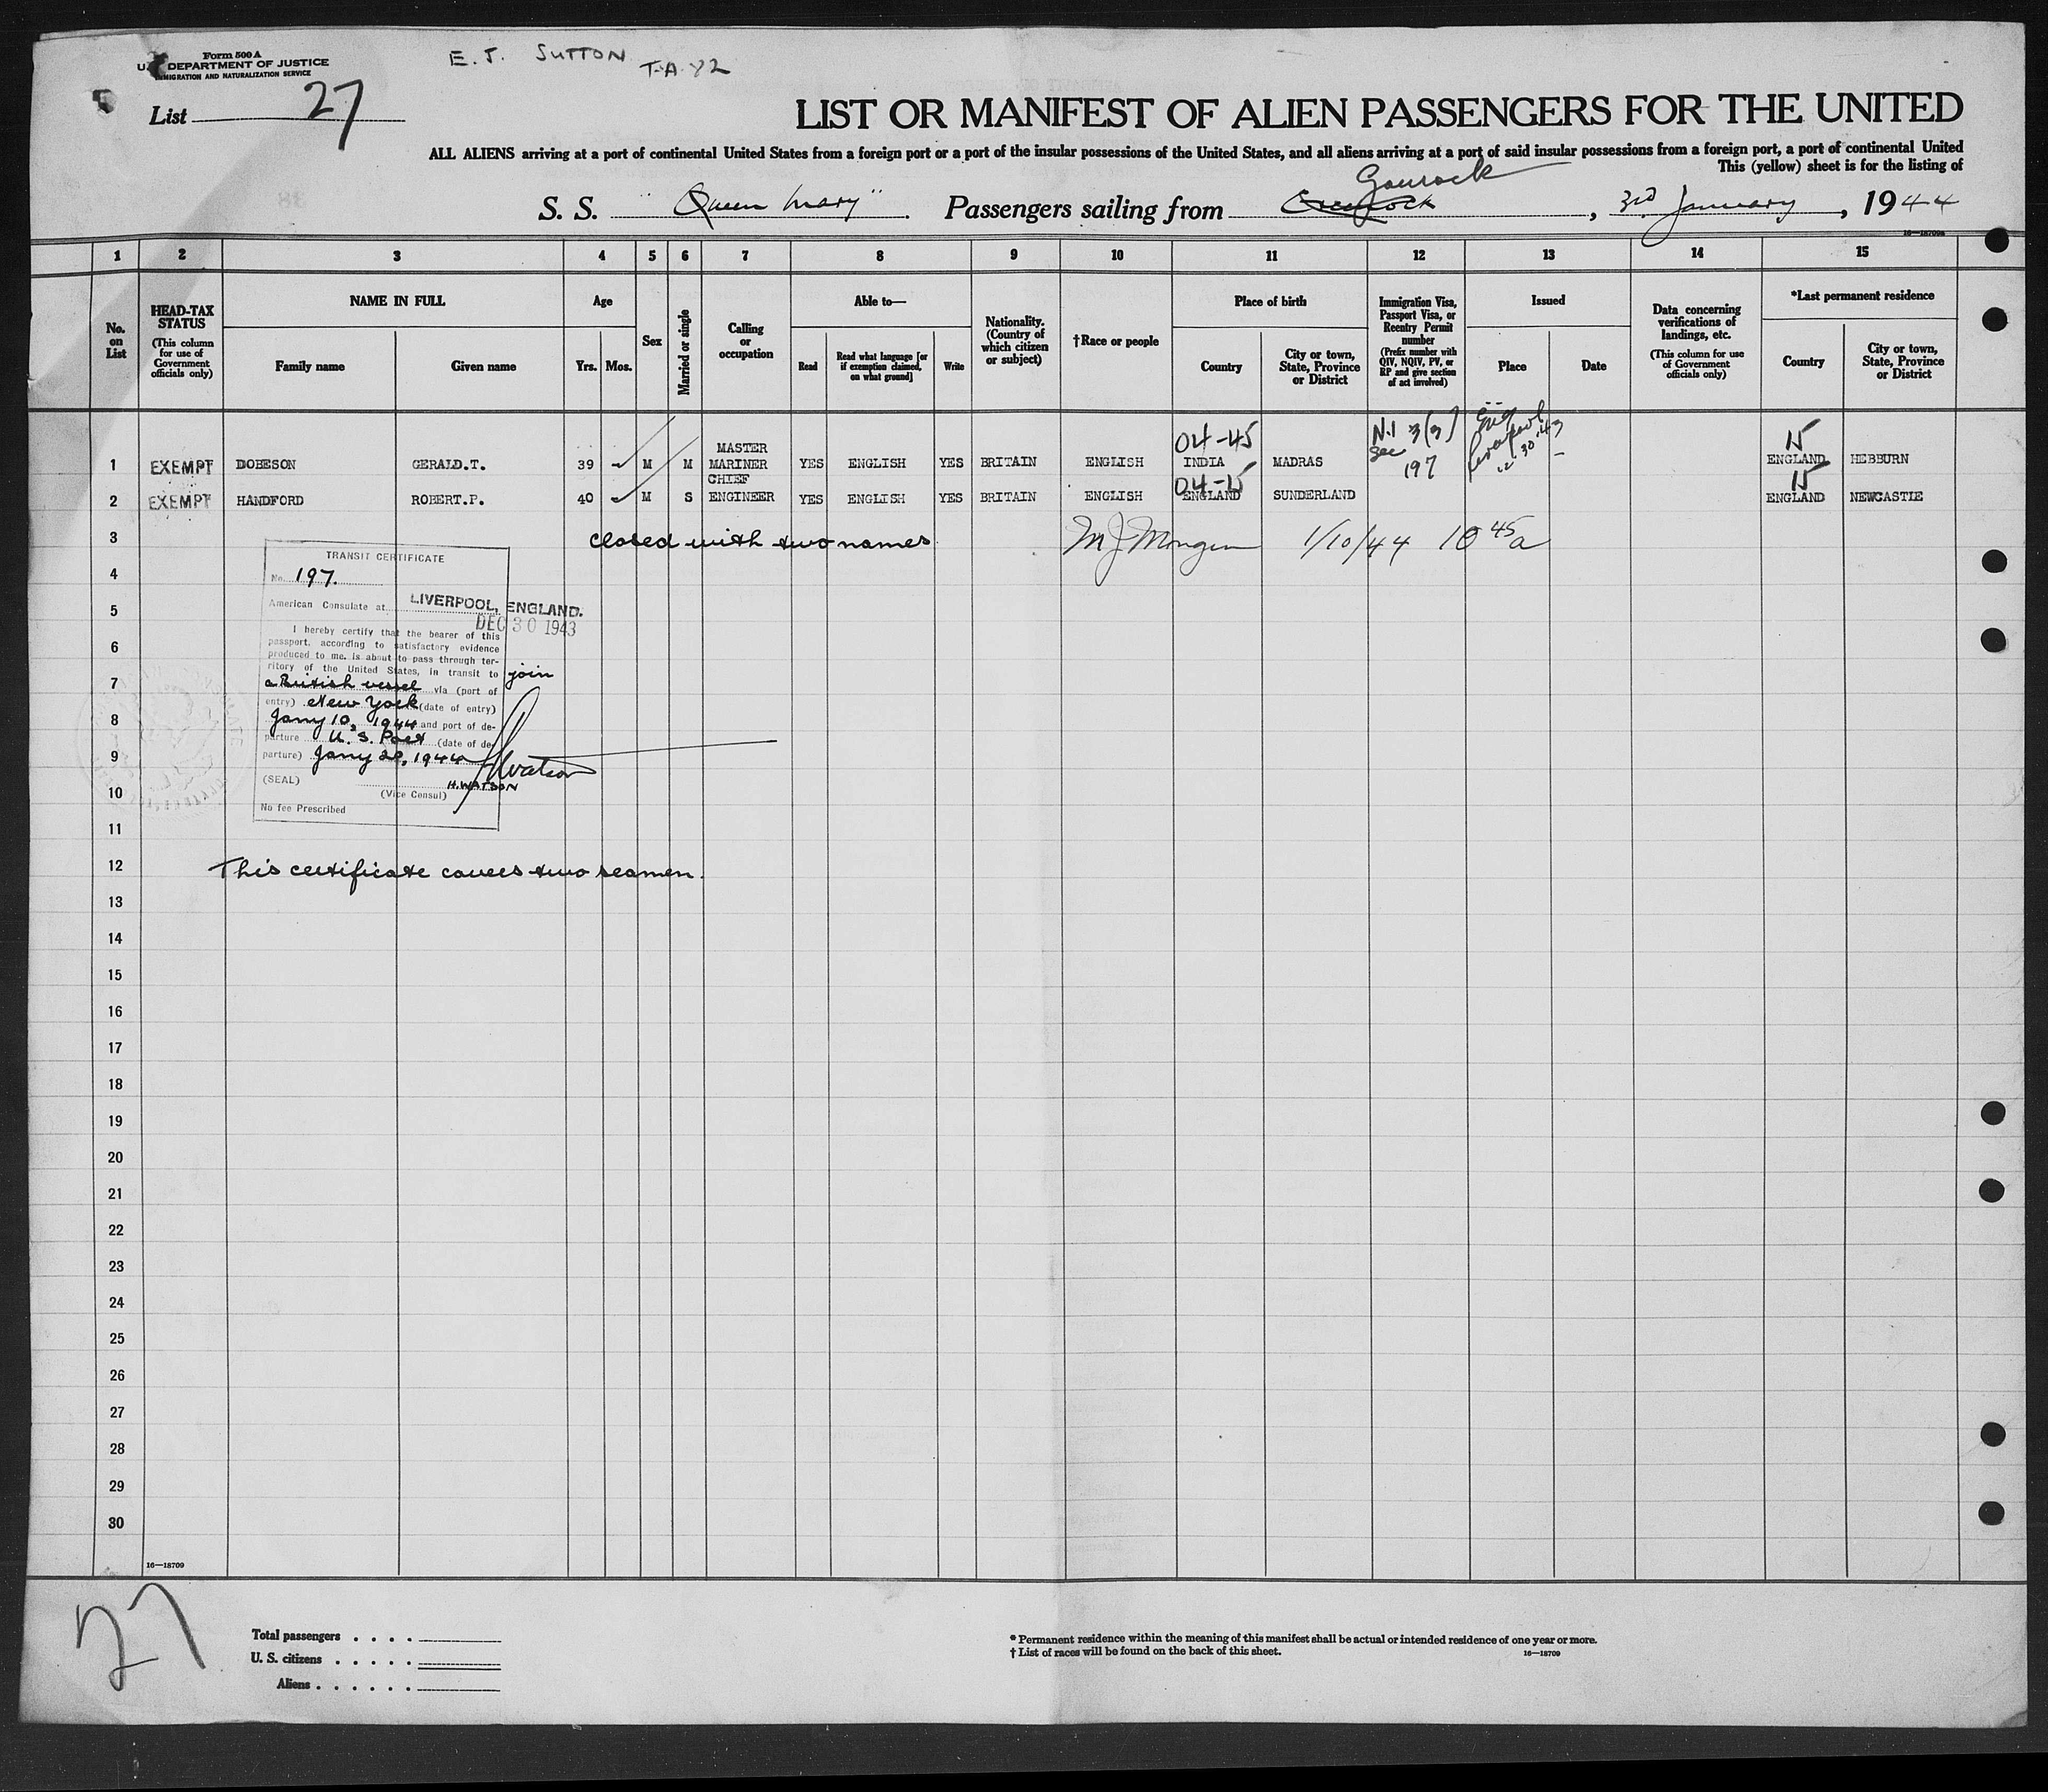 Form 500 A
U. S. DEPARTMENT OF JUSTICE
IMMIGRATION AND NATURALIZATION SERVICE
E. J. SUTTON T.A.Y2
List 27
LIST OR MANIFEST OF ALIEN PASSENGERS FOR THE UNITED
ALL ALIENS arriving at a port of continental United States from a foreign port or a port of the insular possessions of the United States, and all aliens arriving at a port of said insular possessions from a foreign port, a port of continental United
This (yellow) sheet is for the listing of
Gourock
S. S. "Queen Mary". Passengers sailing from Greenock, 3rd January, 1944
16—18709a
1 2 3 4 5 6 7 8 9 10 11 12 13 14 15
No. on List
HEAD-TAX STATUS (This column for use of Government officials only)
NAME IN FULL
Family name
Given name
Age
Yrs. Mos.
Sex
Married or single
Calling or occupation
Able to—
Read
Read what language [or if exemption claimed, on what ground]
Write
Nationality. (Country of which citizen or subject)
†Race or people
Place of birth
Country
City or town, State, Province or District
Immigration Visa, Passport Visa, or Reentry Permit number (Prefix number with QIV, NQIV, PV, or RP and give section of act involved)
Issued
Place
Date
Data concerning verifications of landings, etc. (This column for use of Government officials only)
*Last permanent residence
Country
City or town, State, Province or District
04-45 N.I 3(3) Eng 15
MASTER Sec Liverpool
1 EXEMPT DOBESON GERALD.T. 39 M M MARINER YES ENGLISH YES BRITAIN ENGLISH INDIA MADRAS 197 12 30 '43 ENGLAND HEBBURN
CHIEF 04-15 15
2 EXEMPT HANDFORD ROBERT.P. 40 M S ENGINEER YES ENGLISH YES BRITAIN ENGLISH ENGLAND SUNDERLAND ENGLAND NEWCASTLE
3 closed with two names M J Mongen 1/10/44 10 45 a
TRANSIT CERTIFICATE
4 No. 197.
5 American Consulate at LIVERPOOL, ENGLAND.
DEC 30 1943
I hereby certify that the bearer of this
6 passport, according to satisfactory evidence
produced to me, is about to pass through ter-
ritory of the United States, in transit to join
7 a British vessel via (port of
entry) New York (date of entry)
8 Jany 10, 1944 and port of de-
parture U. S. Port (date of de-
9 parture) Jany 20, 1944
HWatson
(SEAL) H. WATSON
10 (Vice Consul)
No fee Prescribed
11
12 This certificate covers two seamen.
13
14
15
16
17
18
19
20
21
22
23
24
25
26
27
28
29
30
16—18709
27
Total passengers . . . .
U. S. citizens . . . . .
Aliens . . . . . .
* Permanent residence within the meaning of this manifest shall be actual or intended residence of one year or more.
† List of races will be found on the back of this sheet. 16—18709